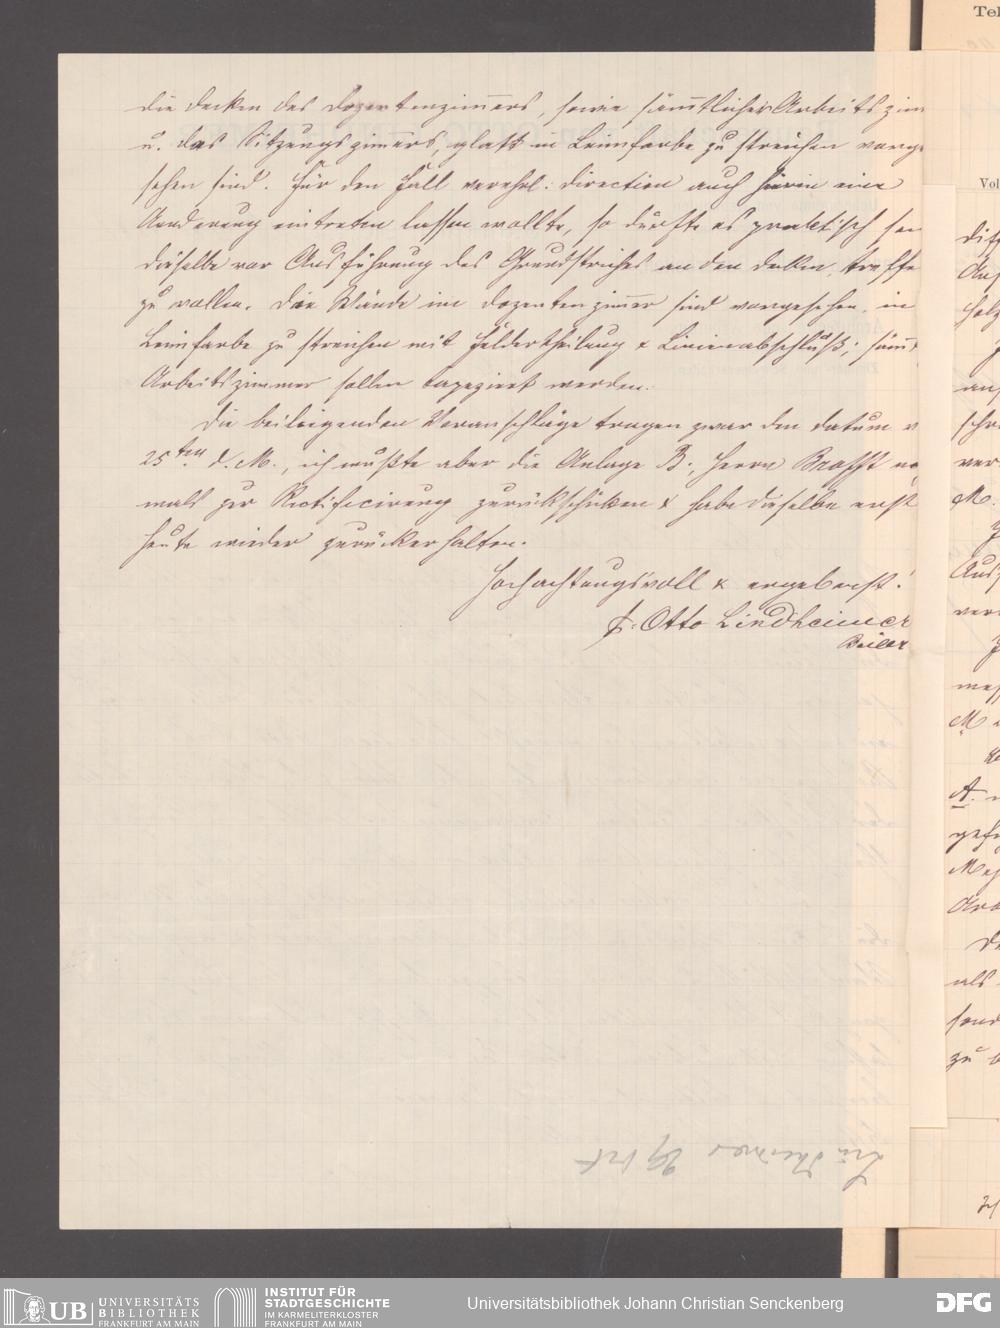 die Decken des Dozentenzimmers, sowie sämtlicher Arbeitszim
u. des Sitzungszimmers, glatt in Leimfarbe zu streichen vorge
sehen sind. Für den Fall verehrl: Direction auch hierin eine
Aenderung eintreten lassen wollte, so dürfte es praktisch sei
dieselbe vor Ausführung des Grundstriches an den Decken, treffe
zu wollen. Die Wände im Dozentenzimer sind vorgesehen, in
Leimfarbe zu streichen mit Feldertheilung & Linienabschluß; säm
Arbeitszimmer sollen tapeziert werden.
Die beiliegenden Voranschläge tragen zwar den Datum v
25ten d. M., ich mußte aber die Anlage B. Herrn no
mals zur Rectificirung zurückschicken & habe dieselbe erst
heute wieder zurückerhalten.
Hochachtungsvoll & ergebenst!
p. Otto Lindheimer
Lindheimer
Tel
Vol
UB UNIVERSITÄTS
BIBLIOTHEK
FRANKFURT AM MAIN
INSTITUT FÜR
STADTGESCHICHTE
IM KARMELITERKLOSTER
FRANKFURT AM MAIN
Universitätsbibliothek Johann Christian Senckenberg
DFG